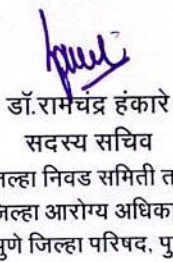 डॉ.रामचंद्र हंकारे
सदस्य सचिव
जिल्हा निवड समिती त
जिल्हा आरोग्य अधिका
पुणे जिल्हा परिषद, पु